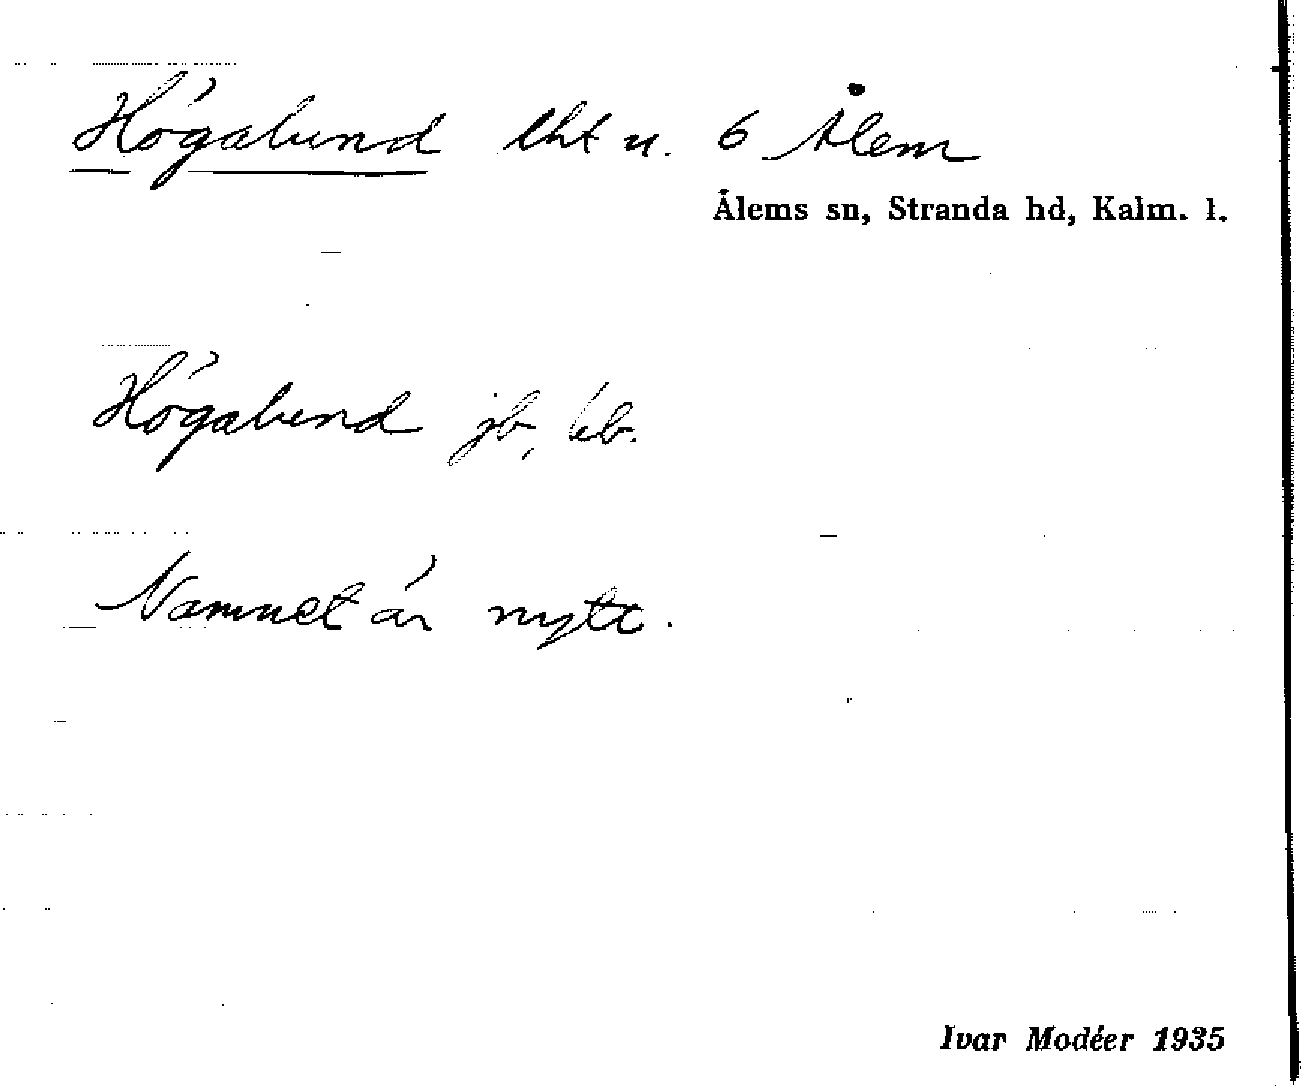 Högalund lht u. 6 Ålem
Ålems sn, Stranda hd, Kalm. l.
Högalund jb, kb.
Namnet är nytt.
Ivar Modéer 1935